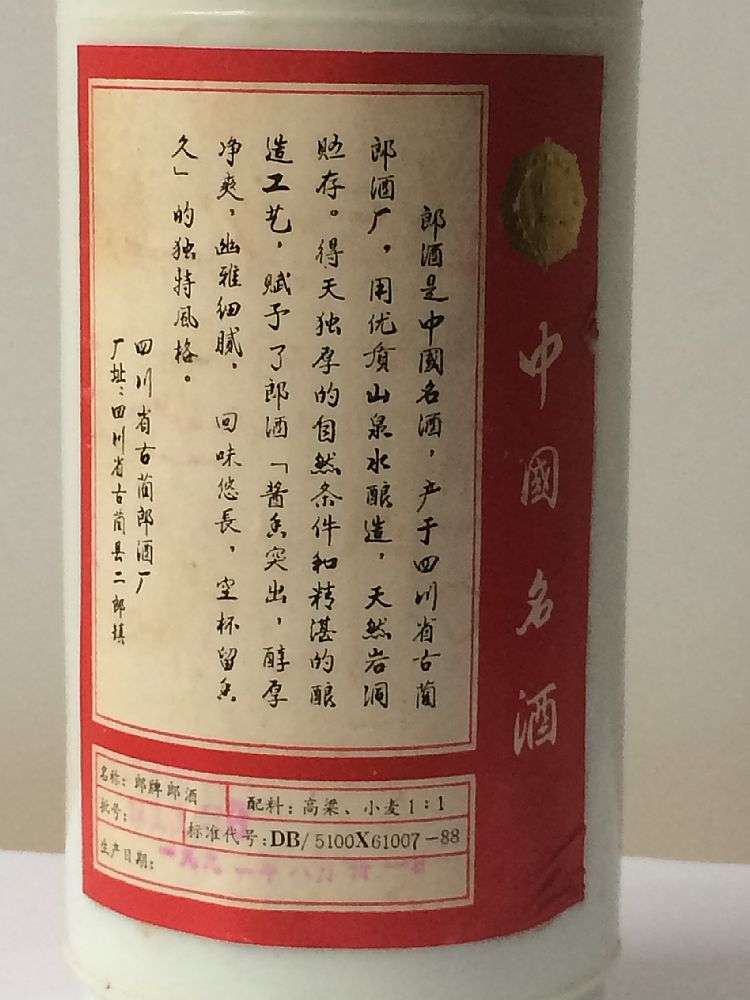 中國名酒
郎酒是中國名酒，产于四川省古蔺
郎酒厂，用优质山泉水酿造，天然岩洞
贮存。得天独厚的自然条件和精湛的酿
造工艺，赋予了郎酒「酱香突出，醇厚
净爽，幽雅细腻，回味悠長，空杯留香
久」的独特風格。
四川省古蔺郎酒厂
厂址：四川省古蔺县二郎镇
名称：郎牌郎酒
配料：高梁、小麦1：1
批号：
标准代号：DB/5100X61007-88
生产日期：一九九一年八月